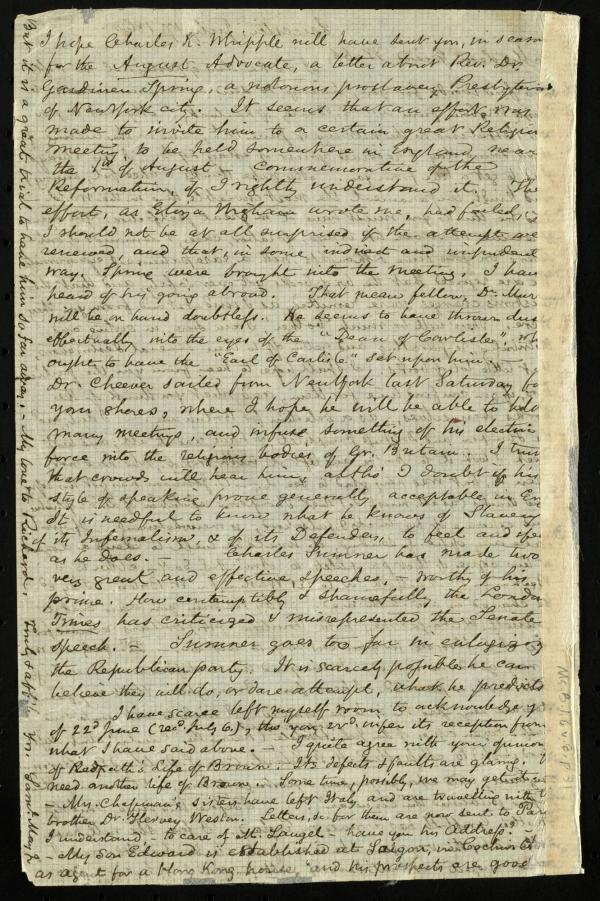 I hope Charles K. Whipple will have sent you, in season
for the August Advocate, a letter about Rev. Dr.
Gardiner Spring, a notorious proslavery Presbyterian
of New York city. It seems that an effort was
made to invite him to a certain great Religious
meeting to be held somewhere in England near
the 1st of August - commemorative of the
Reformation, if I rightly understand it. The
effort, as Eliza Wigham wrote me, had failed,
I should not be at all surprised if the attempt are
renewed, and that, in some indirect and imprudent
way, Spring were brought into the meeting. I have
heard of his going abroad. That mean fellow, Dr. Mur
will be on hand doubtless. He seems to have thrown dust
effectually into the eyes of the "Dean of Carlisle", wh
ought to have the "Earl of Carlisle" set upon him.
Dr. Cheever sailed from New York last Saturday for
your shores, where I hope he will be able to hold
many meetings, and infuse something of his electric
force into the religious bodies of Gr. Britain. I trust
that crowds will hear him, altho' I doubt if his
style of speaking prove generally acceptable in En
It is needful to know what he knows of Slavery
of its Infernalism, & of its Defenders, to feel and spea
as he does. - Charles Sumner has made two
very great and effective speeches, - worthy of his
prime. How contemptibly & shamefully the London
Times has criticized & misrepresented the Senate
speech. - Sumner goes too far in eulogizing
the Republican party. It is scarcely possible he can
believe they will do, or dare attempt, what he predicts
I have scarce left myself room to acknowledge yr
of 22d June (recd July 6), tho' you wd infer its reception from
what I have said above. - I quite agree with your opinion
of Redpath's Life of Brown. Its defects & faults are glaring. We
need another life of Brown. Some time, possibly, we may get it.
- Mrs. Chapman's sisters have left Italy and are travelling with
brother Dr. Hervey Weston. Letters, &c for them are now sent to Paris
I understand - to care of M. Laugel - have you his Address?
- My Son Edward is established at Saigon, in Cochin Ch
as agent for a Hong Kong house, and his prospects are good
But it is a great trial to have him so far away. - My love to Richard. Truly & affly. Yrs. Saml. May Jr.